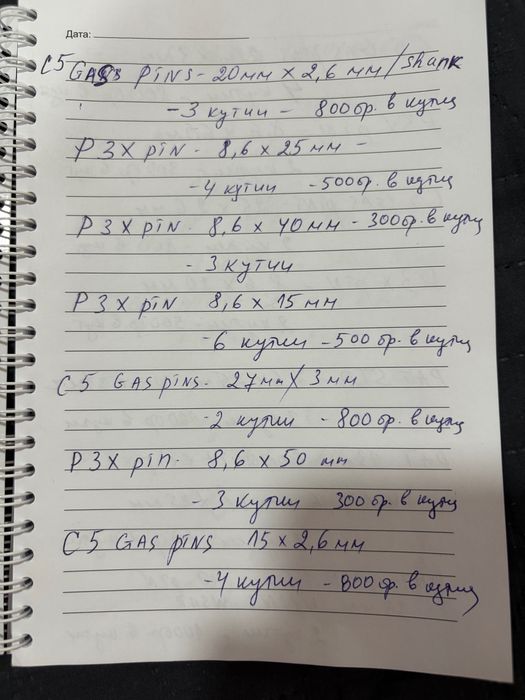 Дата:
C5 GAS PINS - 20мм x 2,6 мм / shank
- 3 кутии - 800бр. в кутия
P3X PIN - 8,6 x 25 мм -
- 4 кутии - 500бр. в кутия
P3X PIN - 8,6 x 40мм - 300бр. в кутия
- 3 кутии
P3X PIN 8,6 x 15 мм
- 6 кутии - 500 бр. в кутия
C5 GAS PINS - 27мм x 3мм
- 2 кутии - 800бр. в кутия
P3X PIN - 8,6 x 50 мм
- 3 кутии 300бр. в кутия
C5 GAS PINS 15 x 2,6 мм
- 4 кутии - 800бр. в кутия